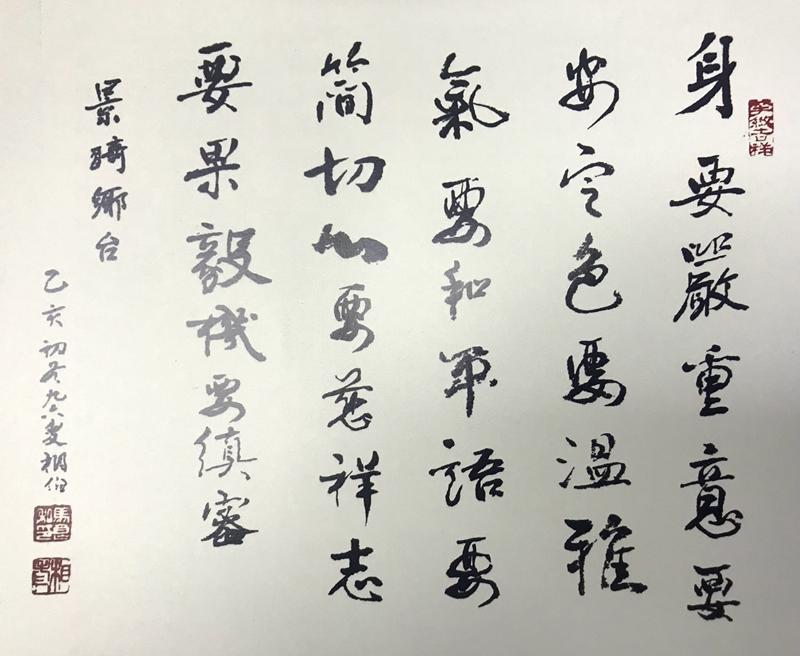 身要嚴重意要
安定色要溫雅
氣要和平語要
簡切心要慈祥志
要果毅機要縝密
景騎鄉台
乙亥初冬九六叟相伯